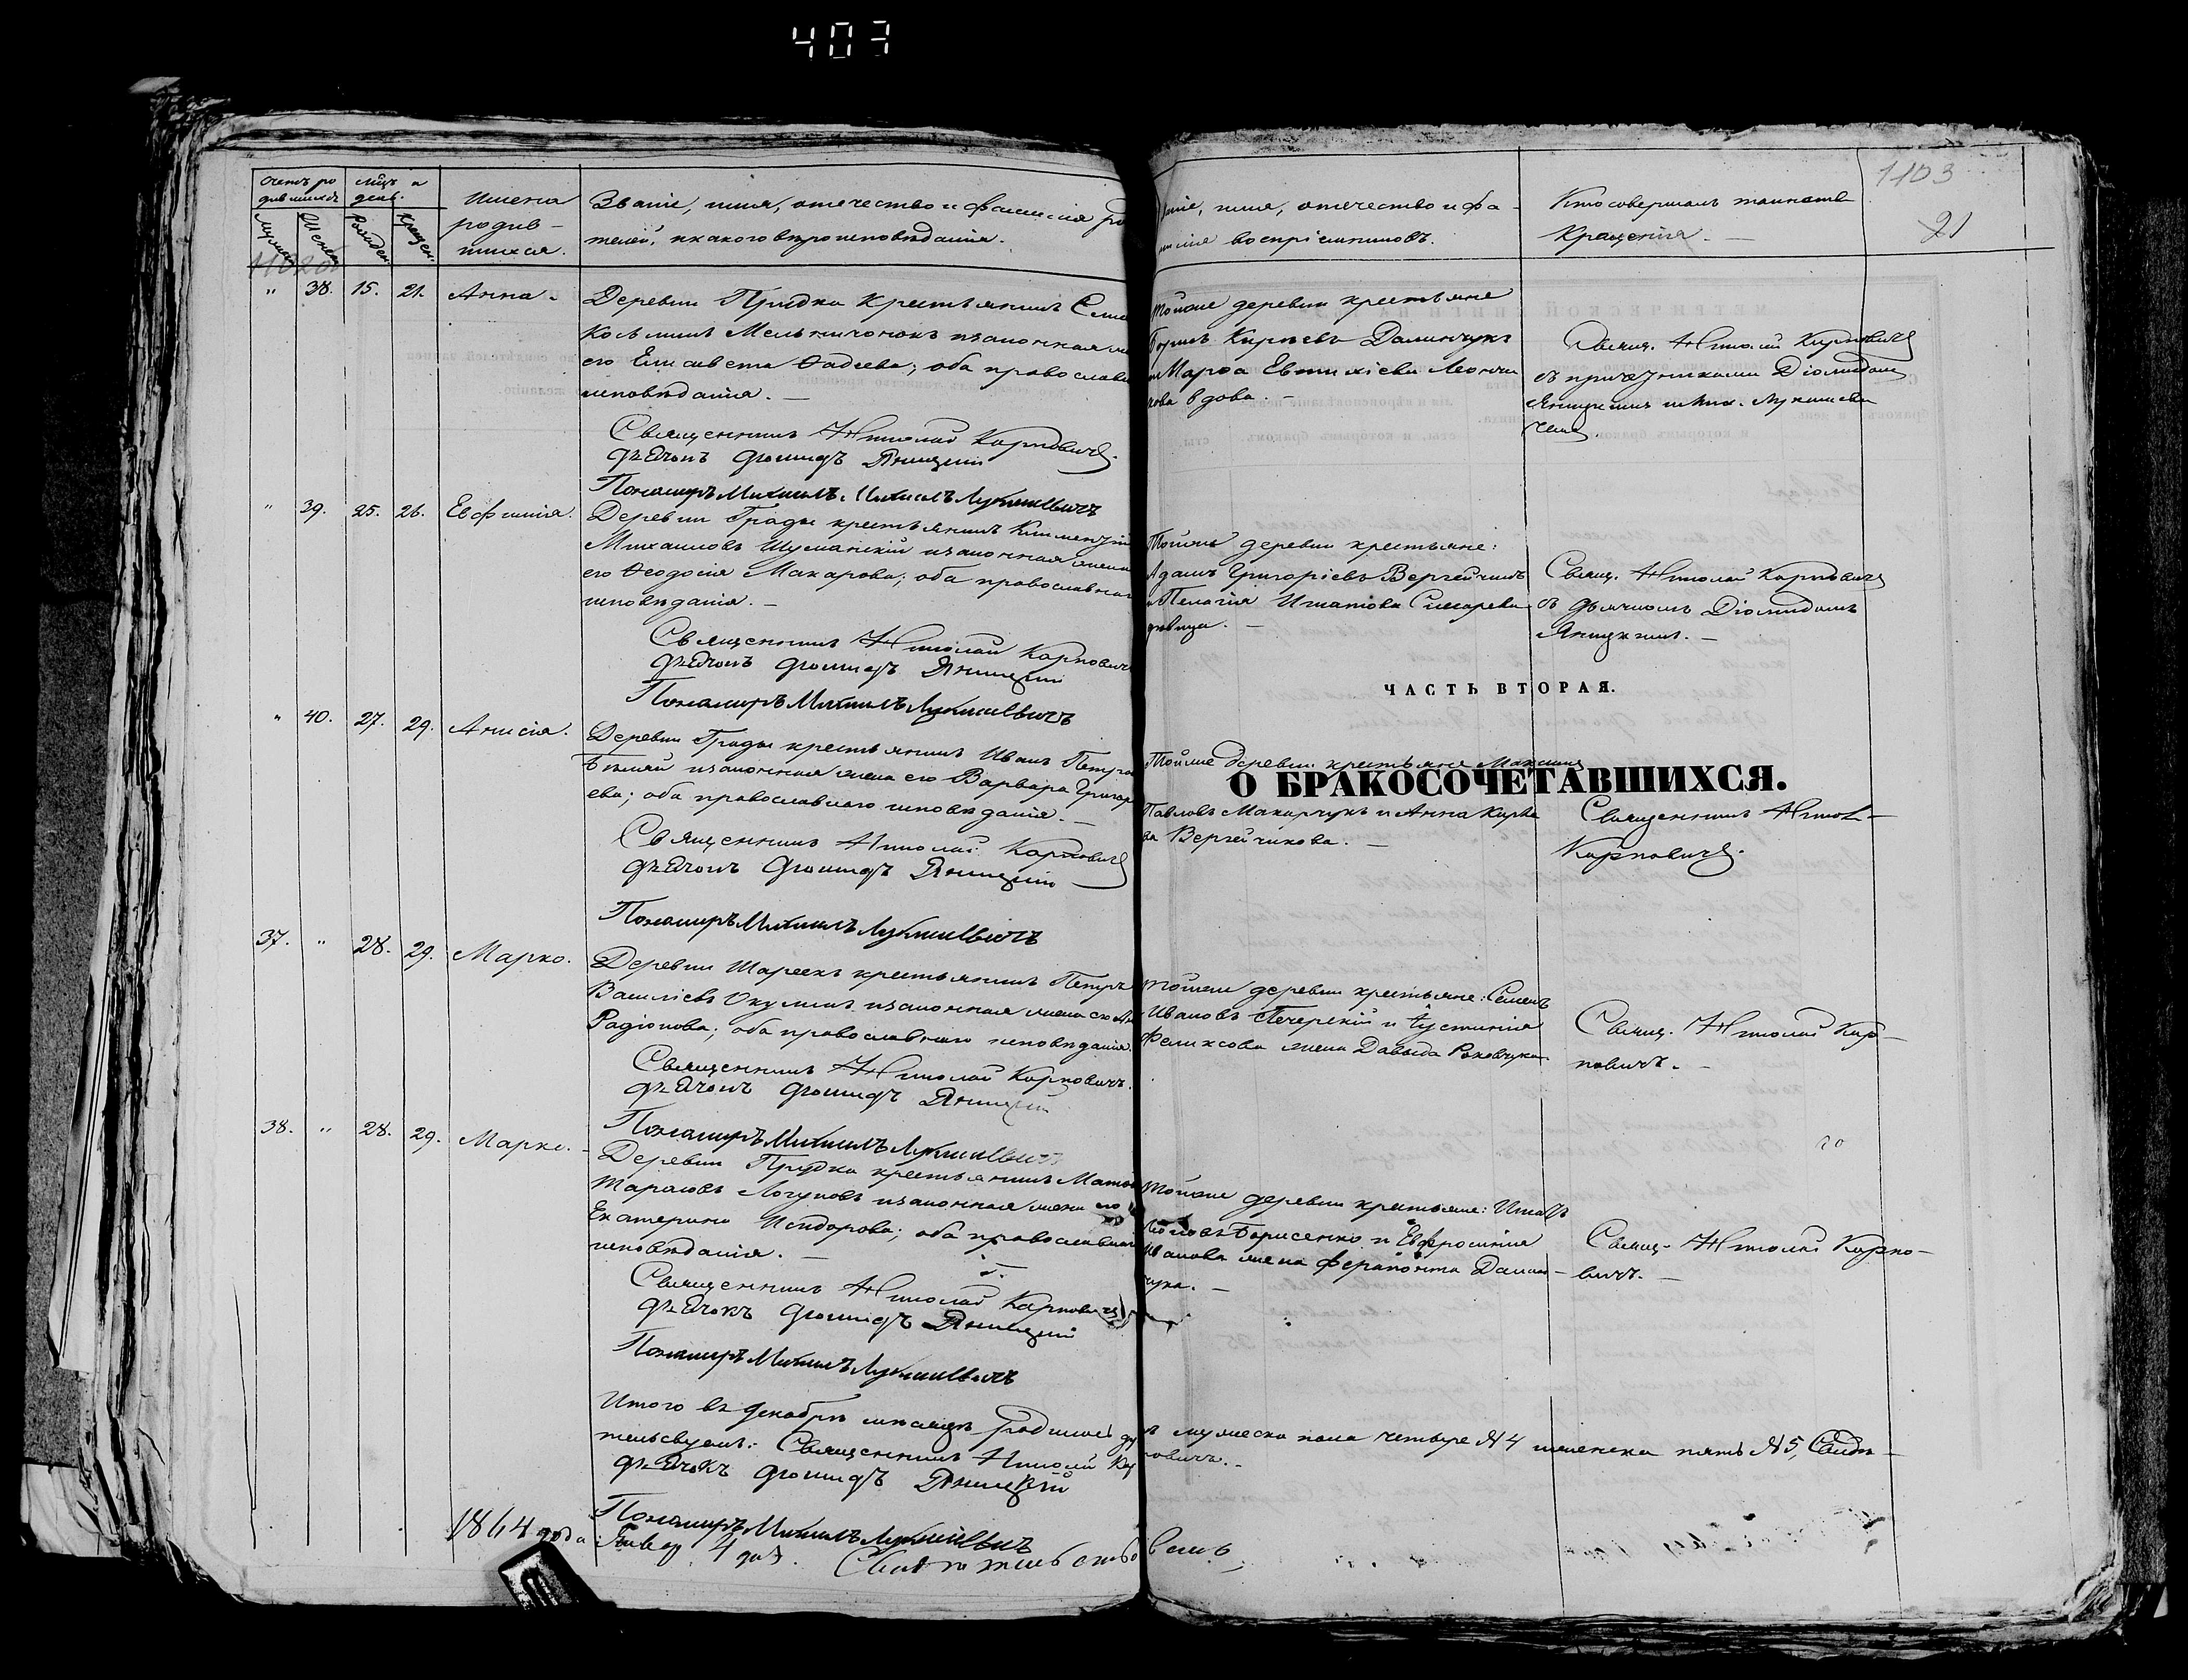 403
1103
21
Счетъ ро
дившихся
Мѣцъ и
день.
Мужеск.
Женск.
Рожден.
Крещен.
Имена
родив-
шихся.
Званіе, имя, отечество и фамилія ро
телей, и какого вѣроисповѣданія.
имя, отечество и фа-
милія воспріемниковъ.
Кто совершалъ таинство
Крещенія. —
" 38. 15. 21. Анна.
Деревни Прудка крестьянинъ
Козьминъ Мельничонокъ и законная
его Елисавета Фадеева; оба православн
исповѣданія. —
Священникъ Николай Карповичъ.
Дьячокъ Діомидъ Яницкій
Пономаръ Михаилъ Лукашевичъ
Тойже деревни крестьяне
Киріевъ Далинчукъ
и Марѳа Евтихіева
вдова. —
Свящ. Николай Карповичъ
съ причетниками Діомидом
Яницкимъ и Мих. Лукашеви
чемъ.
" 39. 25. 26. Евфимія.
Деревни Грады крестьянинъ Климентій
Михаиловъ Шуманскій и законная жена
его Ѳеодосія Макарова; оба православнаго
исповѣданія. —
Священникъ Николай Карповичъ
Дьячокъ Діомидъ Яницкій
Пономаръ Михаилъ Лукашевичъ
Тойже деревни крестьяне:
Адамъ Григоріевъ Вергейчикъ
и Пелагія Игнатова
дѣвица. —
Свящ. Николай Карповичъ
съ дьячкомъ Діомидомъ
Яницкимъ. —
ЧАСТЬ ВТОРАЯ.
О БРАКОСОЧЕТАВШИХСЯ.
" 40. 27. 29. Анисія.
Деревни Грады крестьянинъ Иванъ Петро
и законная жена его Варвара Григор
ева; оба православнаго исповѣданія. —
Священникъ Николай Карповичъ
Дьячокъ Діомидъ Яницкій
Пономаръ Михаилъ Лукашевичъ
Тойже деревни крестьяне Максимъ
Павловъ Макарчукъ и Анна Кирѣе
ва Вергейчикова. —
Священникъ Никол-
Карповичъ.
37. " 28. 29. Марко.
Деревни крестьянинъ Петръ
Василіевъ Окуличъ и законная жена его
Радіонова; оба православнаго исповѣданія.
Священникъ Николай Карповичъ.
Дьячокъ Діомидъ Яницкій
Пономаръ Михаилъ Лукашевичъ
Тойже деревни крестьяне: Семенъ
Ивановъ Печерскій и Іустинія
Феликсова жена Давыда
Свящ. Николай Кар-
повичъ. —
38. " 28. 29. Марко.
Деревни Прудка крестьянинъ
Тарасовъ Логуновъ и законная жена его
Екатерина Исидорова; оба православнаго
исповѣданія. —
Священникъ Николай Карповичъ
Дьячокъ Діомидъ Яницкій
Пономаръ Михаилъ Лукашевичъ
Тойже деревни крестьяне:
Борисенко и Евфросинія
Иванова жена Ферапонта Далин-
чука. —
Свящ. Николай Карпо-
вичъ. —
Итого въ Декабрѣ мѣсяцѣ родилось мужеска пола четыре №4 женска пять №5, Свидѣ-
тельствуемъ: Священникъ Николай Карповичъ. —
Дьячокъ Діомидъ Яницкій
Пономаръ Михаилъ Лукашевичъ
1864 года Январ. 4 дня.